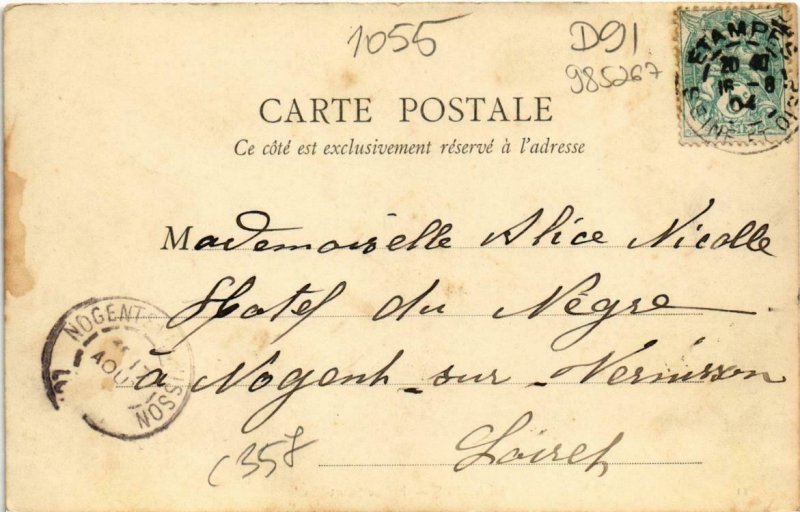 1055
D91
985267
ETAMPES
20 40
16 - 8
04
SEINE ET OISE
CARTE POSTALE
Ce côté est exclusivement réservé à l'adresse
Mademoiselle Alice Nicolle
Hotel du Nègre
à Nogent-sur-Vernisson
Loiret
NOGENT
17
AOU
SSON